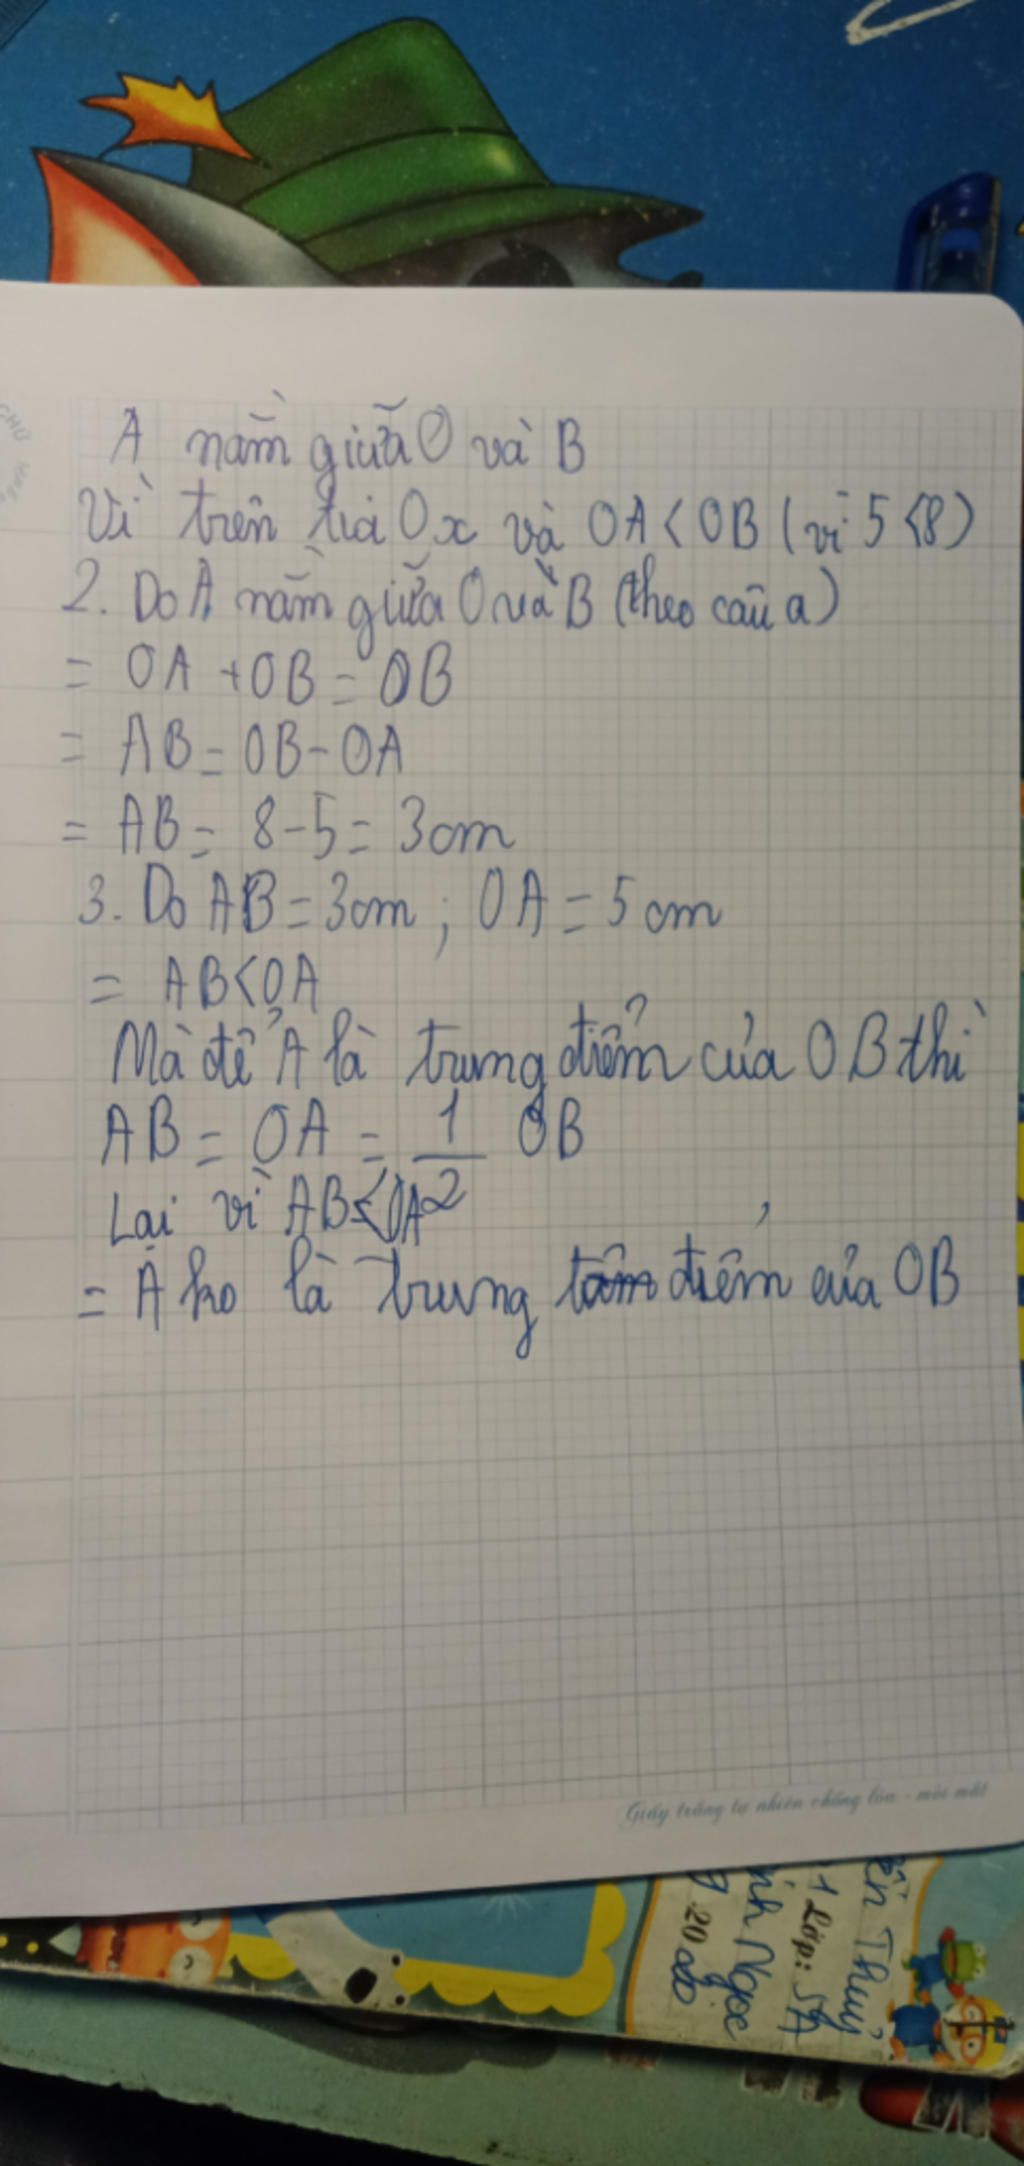 A nằm giữa O và B
Vì trên tia Ox và OA < OB (vì 5 < 8)
2. Do A nằm giữa O và B (theo câu a)
= OA + OB = OB
= AB = OB - OA
= AB = 8 - 5 = 3cm
3. Do AB = 3cm ; OA = 5cm
= AB < OA
Mà để A là trung điểm của OB thì
AB = OA = 1/2 OB
Lại vì AB < OA
= A ko là trung điểm của OB
Giấy trắng tự nhiên chống lóa - mỏi mắt
Thuỷ
1 Lớp: 5A
Ngọc
20